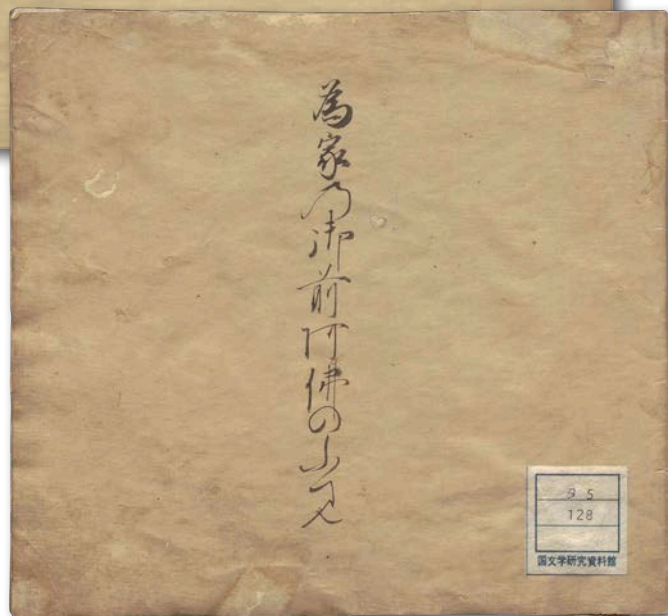 為家乃御前阿佛のふ見
タ5
128
国文学研究資料館